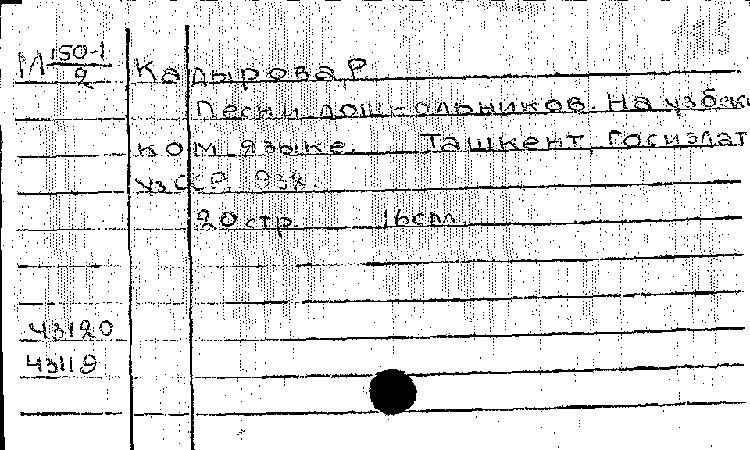 М 150-1/2 Кадырова Р
Песни дош-ольников. На узбекс
ком языке. Ташкент, Госиздат
УзССР.
20 стр. 16см
43120
43119